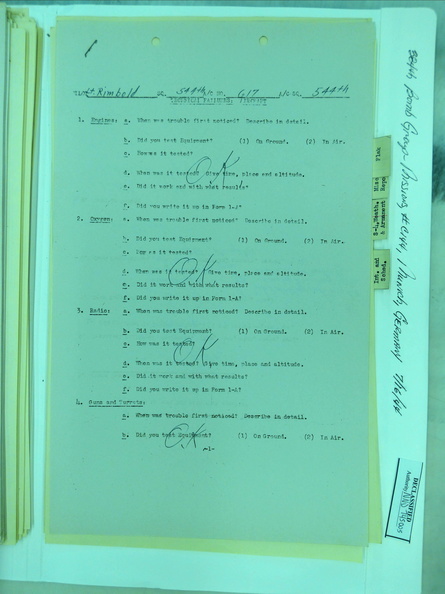 Lt. Rimbold SQ. 544th A/C NO. 617 A/C SQ. 544th
TECHNICAL FAILURES, AIRCRAFT
1. Engine: a. When was trouble first noticed? Describe in detail.
b. Did you test Equipment? (1) On Ground. (2) In Air.
c. How was it tested?
OK
d. When was it tested? Give time, place and altitude.
e. Did it work and with what results?
f. Did you write it up in Form 1-A?
2. Oxygen: a. When was trouble first noticed? Describe in detail.
b. Did you test Equipment? (1) On Ground. (2) In Air.
c. How was it tested?
OK
d. When was it tested? Give time, place and altitude.
e. Did it work and with what results?
f. Did you write it up in Form 1-A?
3. Radio: a. When was trouble first noticed? Describe in detail.
b. Did you test Equipment? (1) On Ground. (2) In Air.
c. How was it tested?
OK
d. When was it tested? Give time, place and altitude.
e. Did it work and with what results?
f. Did you write it up in Form 1-A?
4. Guns and Turrets:
a. When was trouble first noticed? Describe in detail.
b. Did you test Equipment? (1) On Ground. (2) In Air.
OK
-1-
Flak
Misc
Repo
S-4, Death.
& Armament
Int. and
Sched.
384th Bomb Group Mission # Munich, Germany
DECLASSIFIED
Authority NND 745005